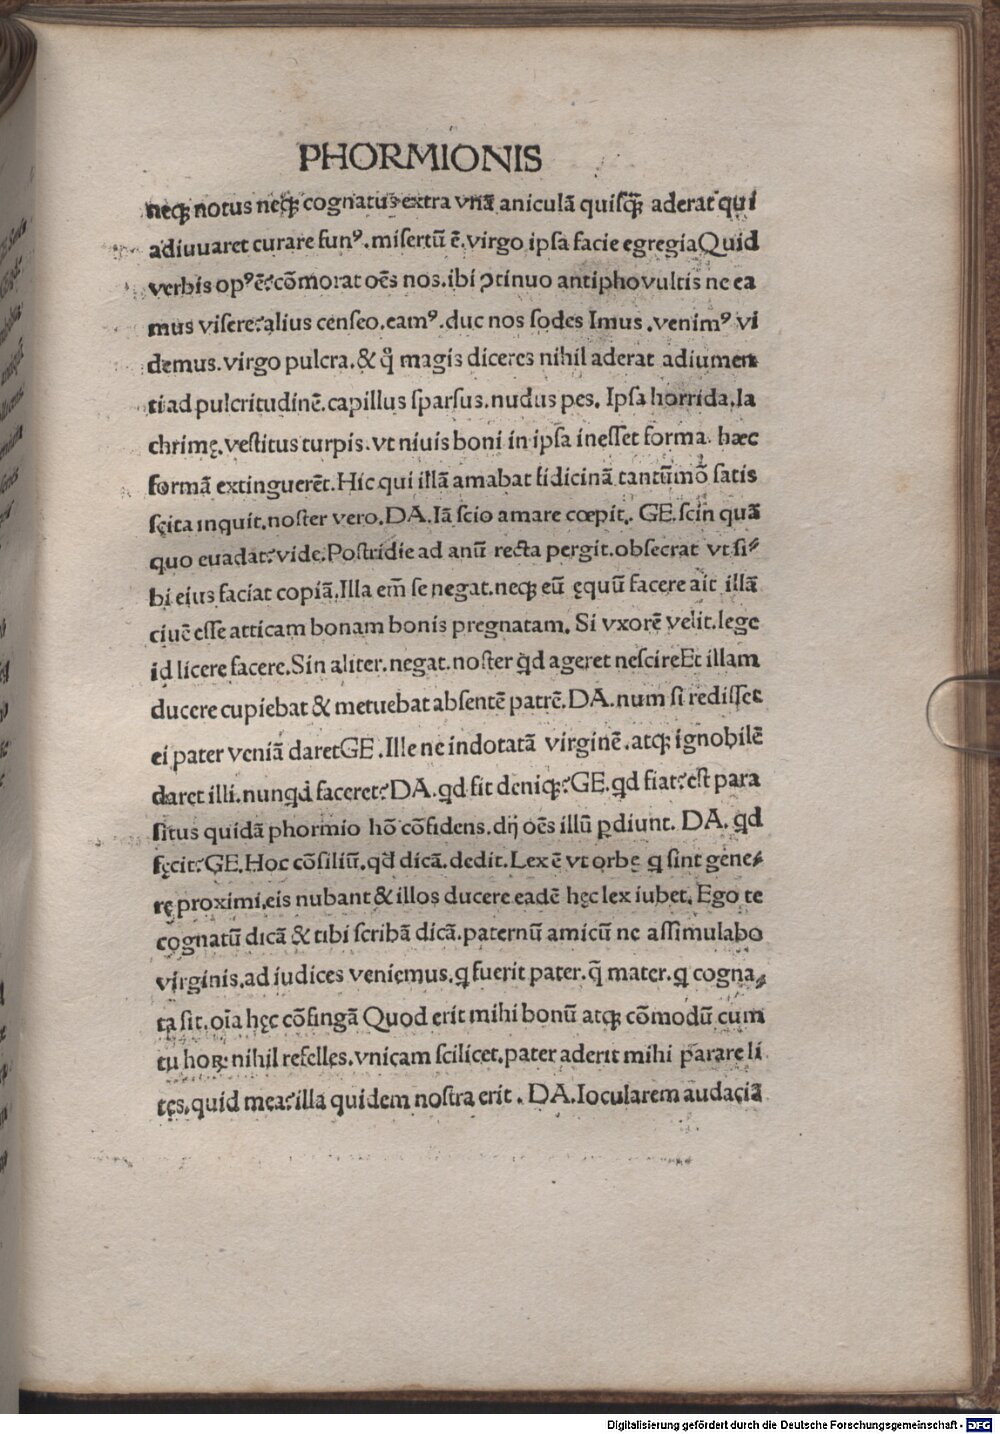 PHORMIONIS
neqꝫ notus neqꝫ cognatus extra vnā aniculā quisq̄ꝫ aderat qui
adiuuaret curare funꝰ. misertū ē. virgo ipsa facie egregia Quid
verbis opꝰ ē? cōmorat oēs nos. ibi ꝯtinuo antipho vultis ne ea
mus visere? alius censeo. eamꝰ. duc nos sodes Imus. venimꝰ vi
demus. virgo pulcra. & q̊ magis diceres nihil aderat adiumen
ti ad pulcritudinē. capillus sparsus. nudus pes. Ipsa horrida. la
chrimę. vestitus turpis. vt niuis boni in ipsa inesset forma. hæc
formā extinguerēt. Hic qui illā amabat fidicinā tantūmō satis
sçita inquit. noster vero. DA. Iā scio amare cœpit. GE. scin quā
quo euadat? vide. Postridie ad anū recta pergit. obsecrat vt si⸗
bi eius faciat copiā. Illa em̄ se negat. neqꝫ eū ęquū facere ait illā
ciuē esse atticam bonam bonis pregnatam. Si vxorē velit. lege
id licere facere. Sin aliter. negat. noster q̄d ageret nescire Et illam
ducere cupiebat & metuebat absentē patrē. DA. num si redisset
ei pater veniā daret GE. Ille ne indotatā virginē. atqꝫ ignobilē
daret illi. nunqd faceret? DA. qd fit deniqꝫ? GE. qd fiat? est para
situs quidā phormio hō cōfidens. dij oēs illū ꝑdiunt. DA. qd
fęcit? GE. Hoc cōsiliū. qd dicā. dedit. Lex ē vt orbę q sint gene⸗
rę proximi. eis nubant & illos ducere eadē hęc lex iubet. Ego te
cognatū dicā & tibi scribā dicā. paternū amicū me assimulabo
virginis. ad iudices veniemus. q fuerit pater. q̄ mater. q cogna⸗
ta sit. oīa hęc cōfingā Quod erit mihi bonū atqꝫ cōmodū cum
tu hoꝝ nihil refelles. vnicam scilicet. pater aderit mihi parare li
tęs. quid mea? illa quidem nostra erit. DA. Iocularem audaciā
Digitalisierung gefördert durch die Deutsche Forschungsgemeinschaft - DFG